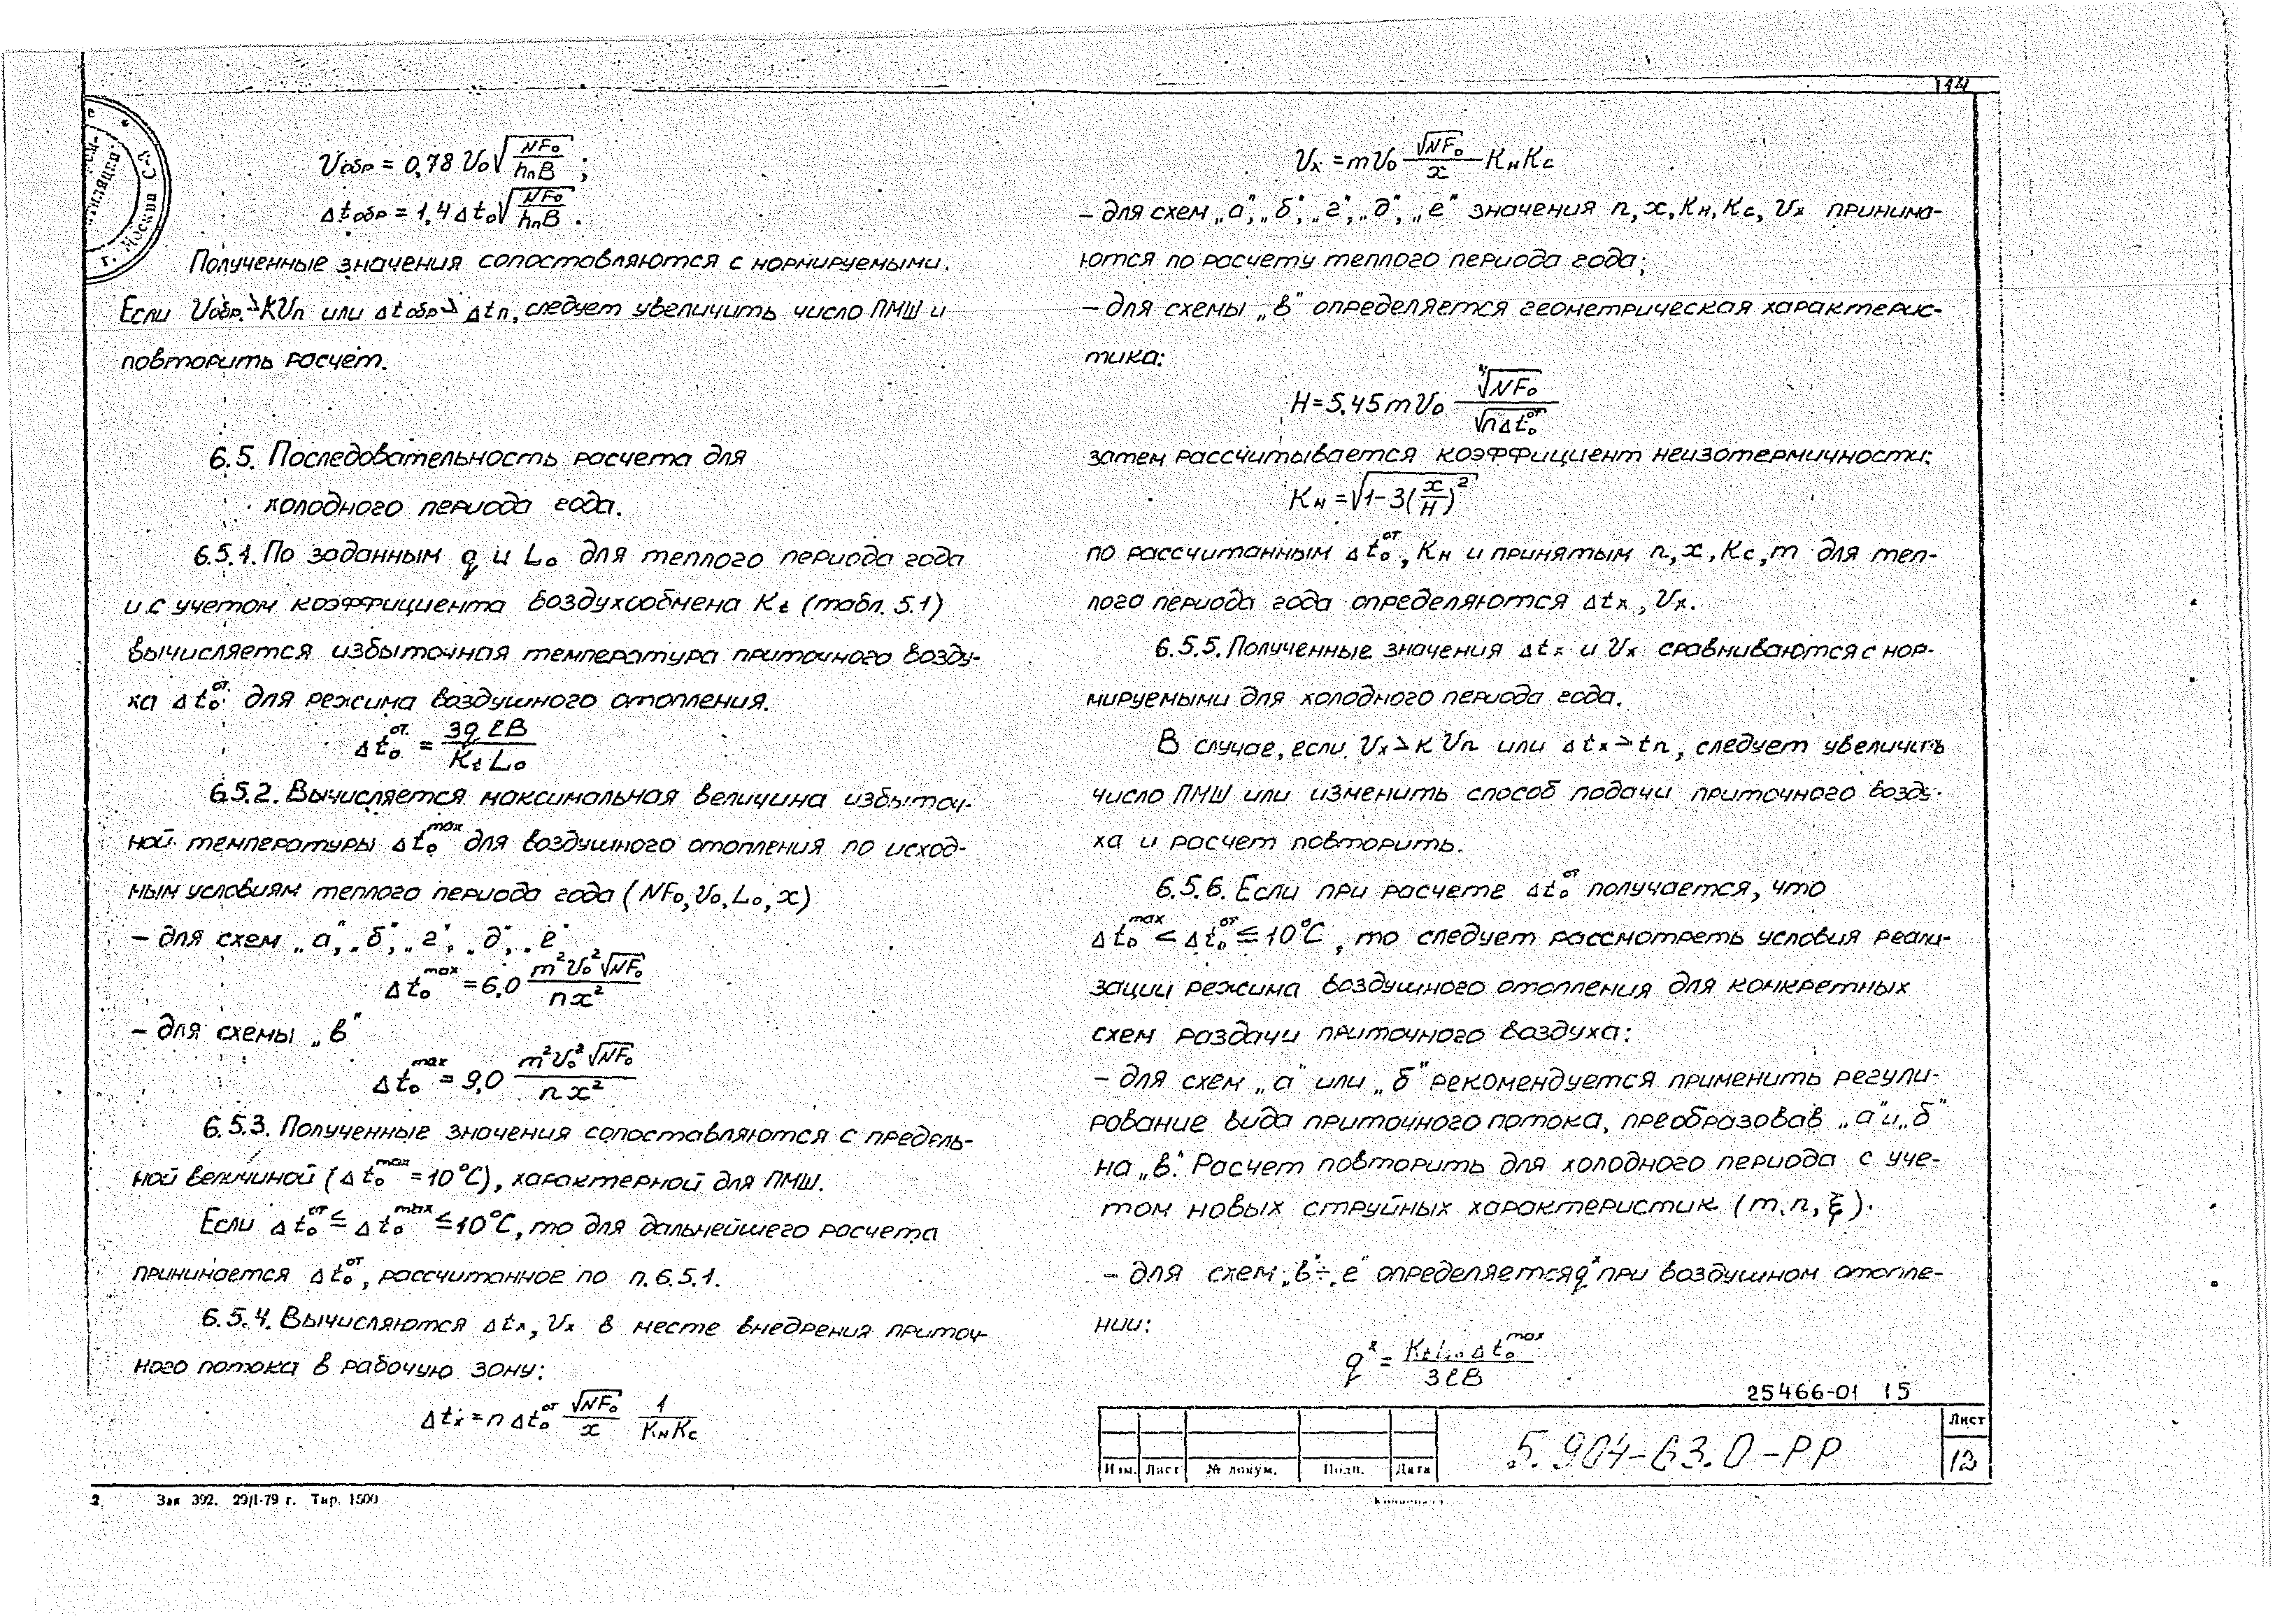 14
г. Москва
Vобр = 0,78 V₀ √(NF₀ / hпB) ;
Δtобр = 1,4 Δt₀ √(NF₀ / hпB) .
Полученные значения сопоставляются с нормируемыми.
Если Vобр.>KVп или Δtобр> Δtп, следует увеличить число ПМШ и
повторить расчет.
6.5. Последовательность расчета для
холодного периода года.
6.5.1. По заданным q и L₀ для теплого периода года
и с учетом коэффициента воздухообмена Kt (табл. 5.1)
вычисляется избыточная температура приточного возду-
ха Δt₀от. для режима воздушного отопления.
Δt₀от. = 3qℓB / KtL₀
6.5.2. Вычисляется максимальная величина избыточ-
ной температуры Δt₀max для воздушного отопления по исход-
ным условиям теплого периода года (NF₀, V₀, L₀, x)
– для схем „а", „б", „г", „д", „е"
Δt₀max = 6,0 m²V₀²√NF₀ / nx²
– для схемы „в"
Δt₀max = 9,0 m²V₀²√NF₀ / nx²
6.5.3. Полученные значения сопоставляются с предель-
ной величиной (Δt₀max = 10°С), характерной для ПМШ.
Если Δt₀от ≤ Δt₀max ≤ 10°С, то для дальнейшего расчета
принимается Δt₀от, рассчитанное по п. 6.5.1.
6.5.4. Вычисляются Δtx, Vx в месте внедрения приточ-
ного потока в рабочую зону:
Δtx = n Δt₀от √NF₀ / x 1 / KнKс
Vx = mV₀ √NF₀ / x KнKс
– для схем „а", „б", „г", „д", „е" значения n, x, Kн, Kс, Vx принима-
ются по расчету теплого периода года;
– для схемы „в" определяется геометрическая характерис-
тика:
H = 5,45 mV₀ ⁴√NF₀ / √nΔt₀от
затем рассчитывается коэффициент неизотермичности:
Kн = √1–3(x/H)²
по рассчитанным Δt₀от, Kн и принятым n, x, Kс, m для теп-
лого периода года определяются Δtx, Vx.
6.5.5. Полученные значения Δtx и Vx сравниваются с нор-
мируемыми для холодного периода года.
В случае, если Vx > к Vп или Δtx > tп, следует увеличить
число ПМШ или изменить способ подачи приточного возду-
ха и расчет повторить.
6.5.6. Если при расчете Δt₀от получается, что
Δt₀max < Δt₀от ≤ 10°С, то следует рассмотреть условия реали-
зации режима воздушного отопления для конкретных
схем раздачи приточного воздуха:
– для схем „а" или „б" рекомендуется применить регули-
рование вида приточного потока, преобразовав „а" и „б"
на „в". Расчет повторить для холодного периода с уче-
том новых струйных характеристик (m, n, ξ).
– для схем „в" ÷ „е" определяется qˣ при воздушном отопле-
нии:
qˣ = KtL₀ Δt₀max / 3ℓB
25466-01 15
Изм. Лист № докум. Подп. Дата
5.904-63.0-РР
Лист
13
2 Зак 392. 29/I-79 г. Тир. 1500